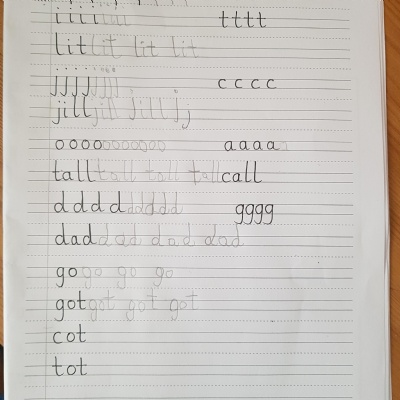 i i i i i i i i t t t t
lit lit lit lit
j j j j j j j j c c c c
jill jill jill j j
o o o o o o o o o o o a a a a a
tall tall tall tall call
d d d d d d d d d g g g g
dad dad dad dad
go go go go
got got got got
cot
tot